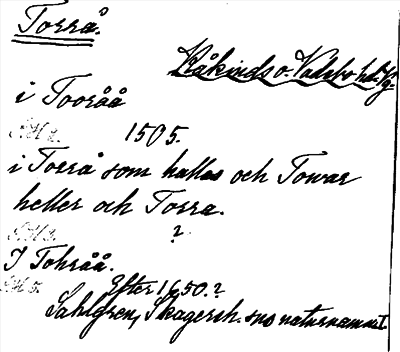 Torrå.
Kåkinds o. Vadsbo hdr. Vg.
i Tooråå
S.H 2. 1505.
i Torrå som kallas och Towar
heller och Torra.
S.H 3. ?
I Tohråå.
S.H 5. Efter 1650.?
Sahlgren, Skagersh. sns naturnamn I